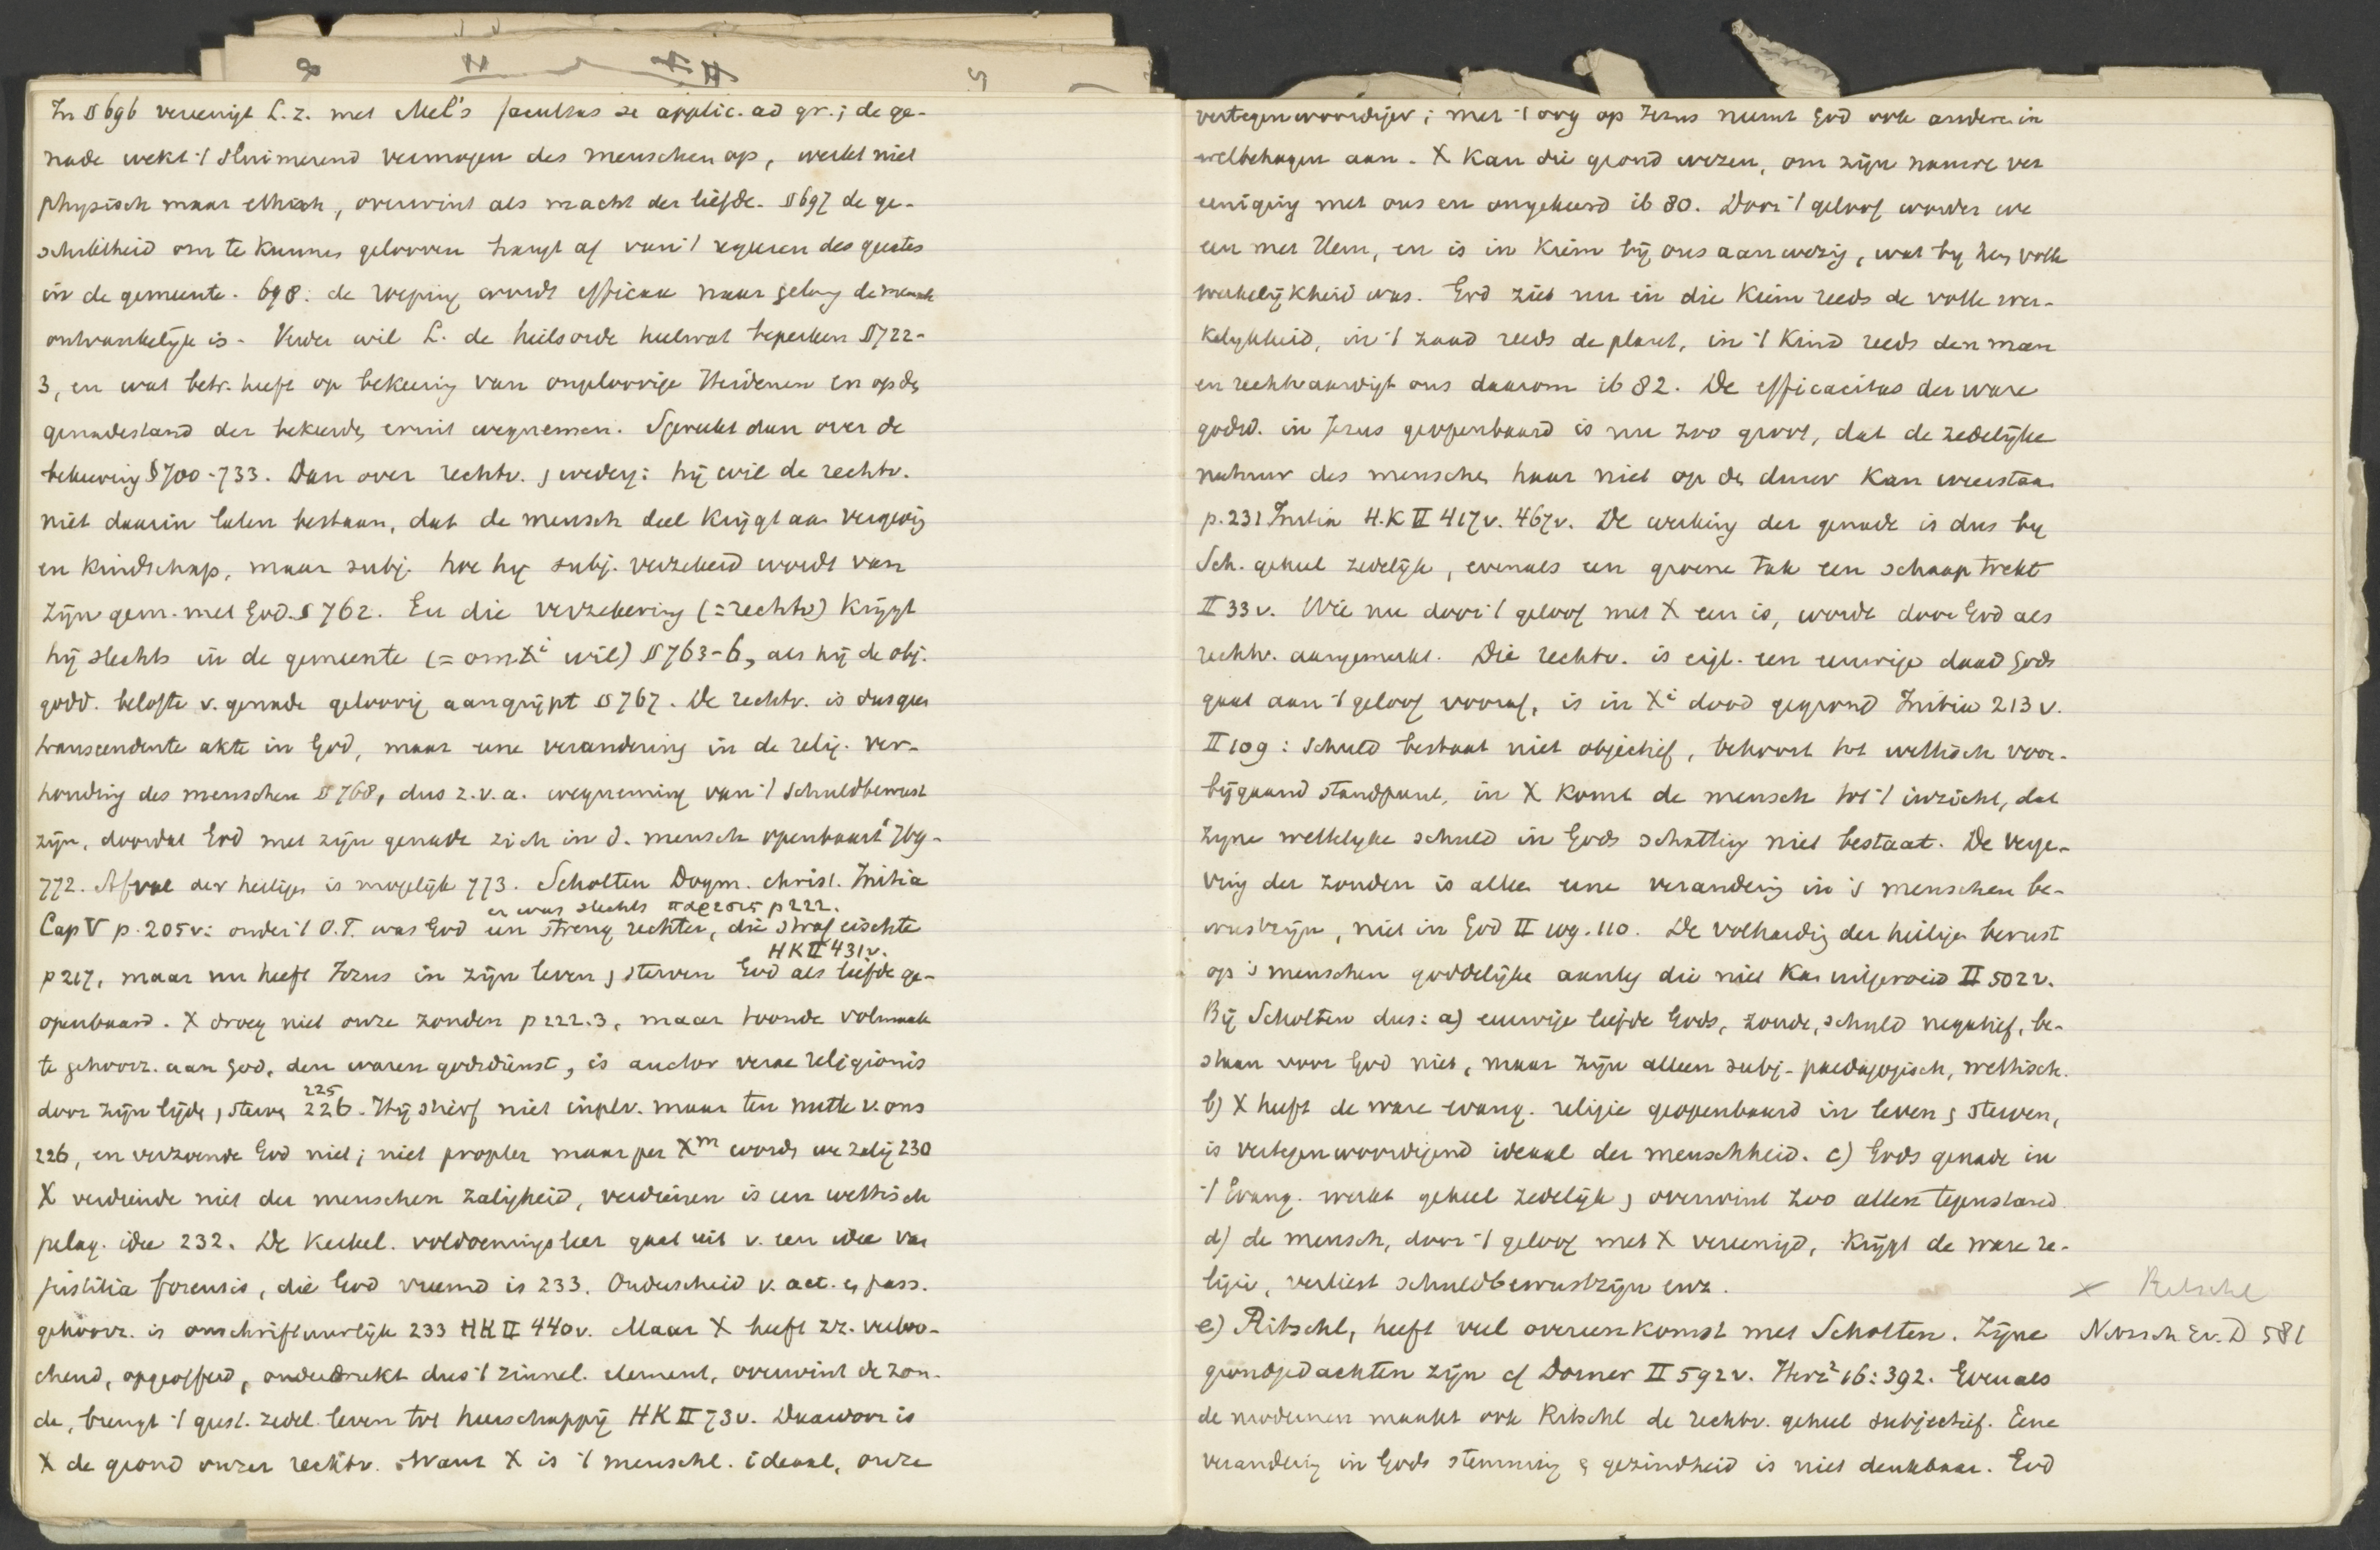 In § 696 vereenigt L. z. met Mel's facultas se applic. ad gr.; de ge-
nade wekt 't sluimerend vermogen des menschen op, werkt niet
physisch maar ethisch, overwint als macht der liefde. § 697 de ge-
schiktheid om te kunnen gelooven hangt af van 't regeeren des geestes
in de gemeente. 698: de roeping wordt efficax naar gelang de mensch
ontvankelijk is. Verder wil L. de heilsorde heelwat beperken § 722-
3, en wat betr. heeft op bekeering van ongeloovige Heidenen en op den
genadestand der bekeerden eruit wegnemen. Spreekt dan over de
bekeering § 700-733. Dan over rechtv. & wederg: hij wil de rechtv.
niet daarin laten bestaan, dat de mensch deel krijgt aan vergeving
en kindschap, maar subj. hoe hij subj. verzekerd wordt van
zijn gem. met God. § 762. En die verzekering (= rechtv) krijgt
hij slechts in de gemeente (= om Xi wil) § 763-6, als hij de obj.
godd. belofte v. genade geloovig aangrijpt § 767. De rechtv. is dus geen
transcendente akte in God, maar eene verandering in de relig. ver-
houding des menschen § 768, dus z.v.a. wegneming van 't schuldbewust
zijn, doordat God met zijn genade zich in d. mensch openbaart 769-
772. Afval der heiligen is mogelijk 773. Scholten Dogm. christ. Initia
er was slechts παρεσις p 222.
Cap V p. 205 v: onder 't O.T. was God een streng rechter, die straf eischte
HK II 431 v.
p 217, maar nu heeft Jezus in zijn leven & sterven God als liefde ge-
openbaard. X droeg niet onze zonden p 222.3, maar toonde volmaak
te gehoorz. aan God, den waren godsdienst, is auctor verae religionis
225
door zijn lijden & sterven 226. Hij stierf niet in plv. maar ten nutte v. ons
226, en verzoende God niet; niet propter maar per Xm worden we zalig 230
X verdiende niet der menschen zaligheid, verdienen is een wettisch
pelag. idee 232. De kerkel. voldoeningsleer gaat uit v. een idee van
justitia forensis, die God vreemd is 233. Onderscheid v. act. en pass.
gehoorz. is onschriftuurlijk 233 HK II 440 v. Maar X heeft zz. verloo-
chend, opgeofferd, onderdrukt dus 't zinnel. element, overwint de zon-
de, brengt 't geest. zedel. leven tot heerschappij HK II 73 v. Daardoor is
X de grond onzer rechtv. Want X is 't menschl. ideaal, onze
vertegenwoordiger; met 't oog op Jezus neemt God ook anderen in
welbehagen aan. X kan die grond wezen, om zijn nauwe ver
eeniging met ons en omgekeerd ib 80. Door 't geloof worden we
een met Hem, en is in kiem bij ons aanwezig, wat bij hem volle
werkelijkheid was. God ziet nu in die kiem reeds de volle wer-
kelijkheid, in 't zaad reeds de plant, in 't kind reeds den man
en rechtvaardigt ons daarom ib 82. De efficacitas der ware
godsd. in Jezus geopenbaard is nu zoo groot, dat de zedelijke
natuur des menschen haar niet op den duur kan weerstaan
p. 231 Initia H.K II 417 v. 467 v. De werking der genade is dus bij
Sch. geheel zedelijk, evenals een groene tak een schaap trekt
II 33 v. Wie nu door 't geloof met X een is, wordt door God als
rechtv. aangemerkt. Die rechtv. is eigl. een eeuwige daad Gods
gaat aan 't geloof vooraf, is in Xi dood gegrond Initia 213 v.
II 109: schuld bestaat niet objectief, behoort tot wettisch voor-
bijgaand standpunt, in X komt de mensch tot 't inzicht, dat
zijne wettelijke schuld in Gods schatting niet bestaat. De verge-
ving der zonden is alleen eene verandering in 's menschen be-
wustzijn, niet in God II 109. 110. De volharding der heiligen berust
op 's menschen goddelijke aanleg die niet kan uitgeroeid II 502 v.
Bij Scholten dus: a) eeuwige liefde Gods, zonde, schuld negatief, be-
staan voor God niet, maar zijn alleen subj-paedagogisch, wettisch.
b) X heeft de ware evang. religie geopenbaard in leven & sterven,
is vertegenwoordigend ideaal der menschheid. c) Gods genade in
't Evang. werkt geheel zedelijk & overwint zoo allen tegenstand
d) de mensch, door 't geloof met X vereenigd, krijgt de ware re-
ligie, verliest schuldbewustzijn enz.
x Ritschl
e) Ritschl, heeft veel overeenkomst met Scholten. Zijne
Nitzsch Ev. D 581
grondgedachten zijn cf Dorner II 592 v. Herz² 16: 392. Evenals
de modernen maakt ook Ritschl de rechtv. geheel subjectief. Eene
verandering in Gods stemming & gezindheid is niet denkbaar. God